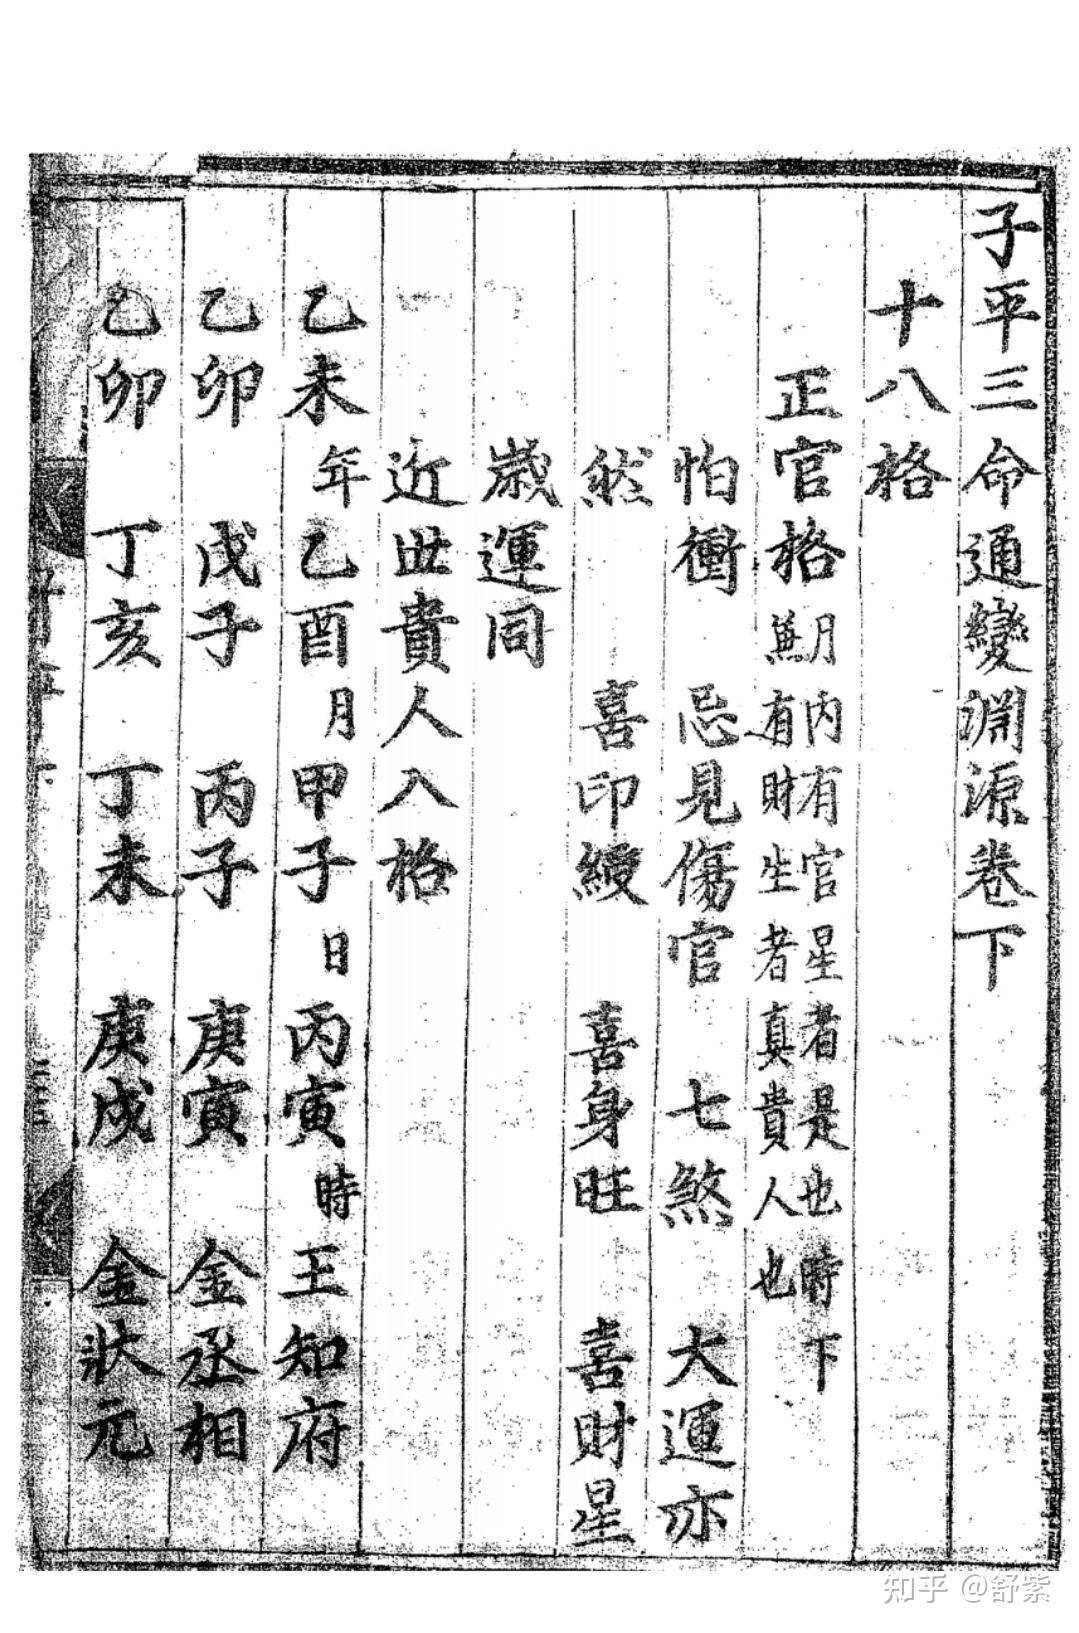 子平三命通變淵源卷下
十八格
正官格 月内有官星者是也時下
無有財生者真貴人也
怕衝 忌見傷官 七煞 大運亦
然 喜印綬 喜身旺 喜財星
歲運同
近世貴人入格
乙未年 乙酉月 甲子日 丙寅時 王知府
乙卯 戊子 丙子 庚寅 金丞相
乙卯 丁亥 丁未 庚戌 金狀元
知乎 @舒紫